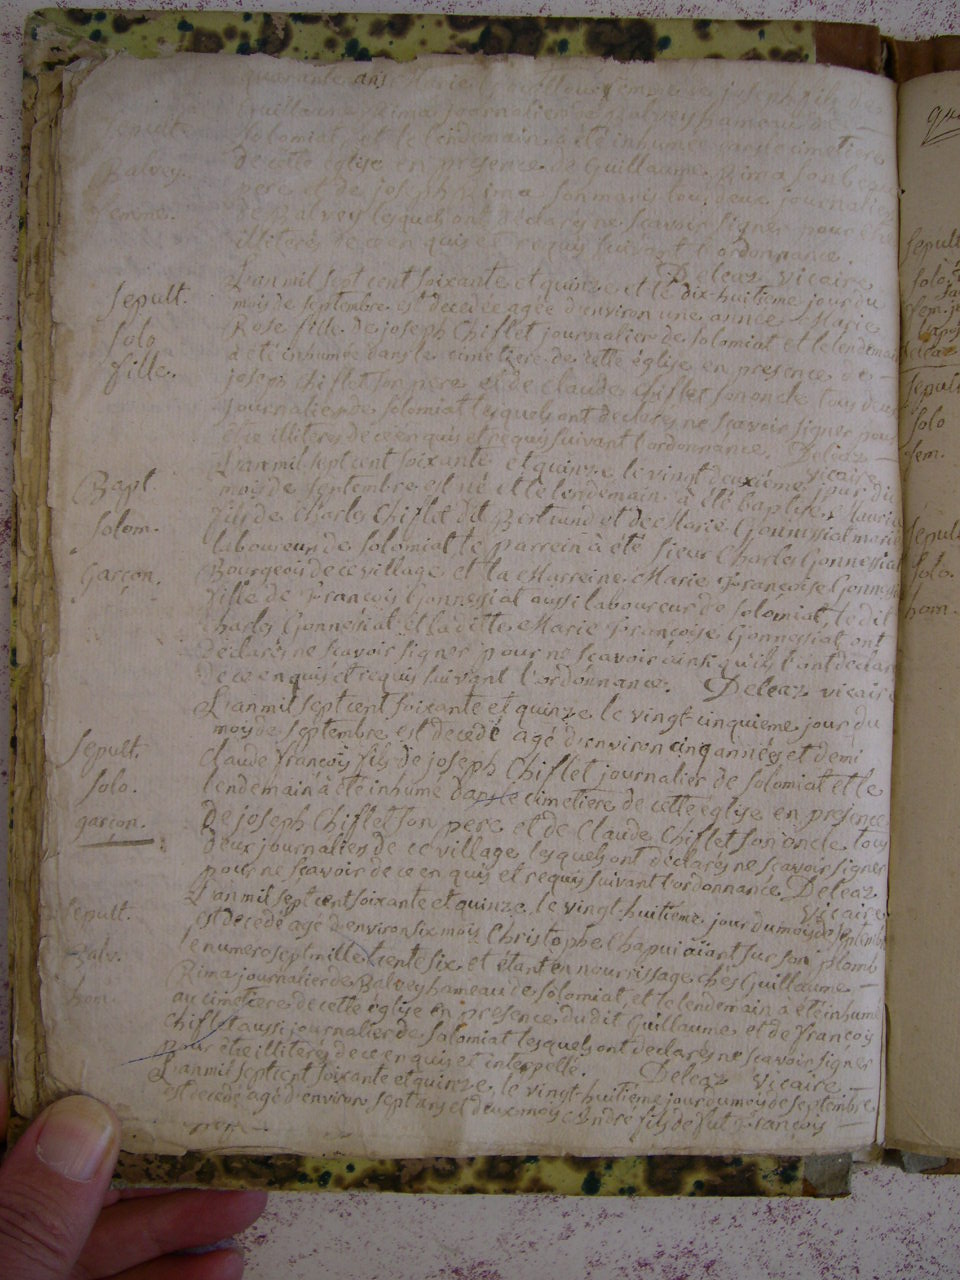 quarante ans Marie femme de joseph fils de
Guillaume Rima journalier de Balvey hameau de
Solomiat, et le lendemain à été inhumée au cimetiere
de cette église en presence de Guillaume Rima son beau
pere et de joseph Rima son mary tous deux journaliers
de Balvey lesquels ont declarés ne scavoir signer pour être
illiterés de ce enquis et requis suivant l'ordonnance.
Deleaz vicaire
Sepult.
Balvey.
femme.
L'an mil sept cent soixante et quinze et le dix-huitième jour du
mois de septembre est decedée agée d'environ une année Marie
Rose fille de joseph Chiflet journalier de Solomiat et le lendemain
à été inhumée dans le cimetiere de cette église en presence de
joseph Chiflet son pere et de Claude Chiflet son oncle tous deux
journaliers de Solomiat lesquels ont declarés ne scavoir signer pour
être illiterés de ce enquis et requis suivant l'ordonnance. Deleaz
vicaire
Sepult.
Solo
fille.
L'an mil sept cent soixante et quinze le vingt deuxième jour du
mois de septembre est né et le lendemain à été baptisé Maurice
fils de Charles Chiflet dit Bertrand et de Marie Gonnessiat mariés
laboureurs de Solomiat le parrein à été sieur Charles Gonnessiat
Bourgeois de ce village et la Marreine Marie Françoise Gonnessiat
fille de François Gonnessiat aussi laboureur de Solomiat, le dit
Charles Gonnessiat et la ditte Marie Françoise Gonnessiat ont
declarés ne scavoir signer pour ne scavoir ainsi qu'ils l'ont declaré
de ce enquis et requis suivant l'ordonnance. Deleaz vicaire
Bapt.
Solom.
Garçon.
L'an mil sept cent soixante et quinze le vingt-cinquieme jour du
moy de septembre est decedé agé d'environ cinq années et demi
Claude François fils de joseph Chiflet journalier de Solomiat et le
lendemain à été inhumé dans le cimetiere de cette église en presence
de joseph Chiflet son pere et de Claude Chiflet son oncle tous
deux journaliers de ce village lesquels ont declarés ne scavoir signer
pour ne scavoir de ce enquis et requis suivant l'ordonnance Deleaz
vicaire
Sepult.
Solo.
garcon.
L'an mil sept cent soixante et quinze le vingt-huitieme jour du moys de septembre
est decedé agé d'environ six mois Christophe Chapui aïant sur son plomb
le numero sept mille trente six et étant en nourrissage chés Guillaume
Rima journalier de Balvey hameau de Solomiat, et le lendemain à été inhumé
au cimetiere de cette église en presence du dit Guillaume et de François
Chiflet aussi journalier de Solomiat lesquels ont declarés ne scavoir signer
pour être illiterés de ce enquis et interpellé. Deleaz vicaire
Sepult.
Balv.
hom.
L'an mil sept cent soixante et quinze le vingt-huitième jour du moys de septembre
est decedé agé d'environ sept ans et deux moys André fils de fut François
Sepult
Solo.
fem.
Sepult
Solo
fem.
Sepult
Solo.
hom.